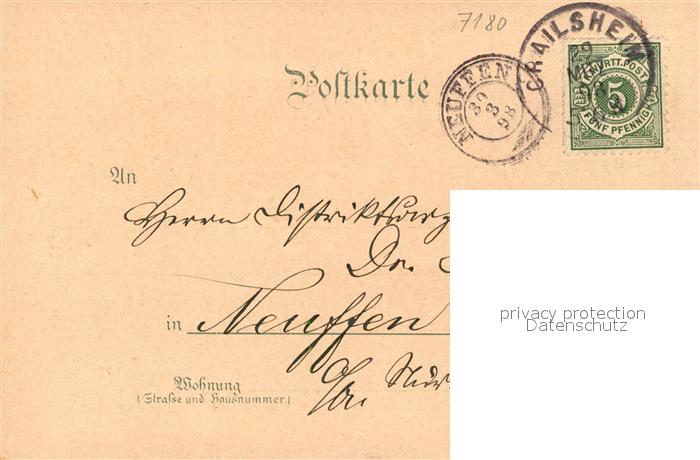 7180
CRAILSHEIM
29
K. WÜRTT. POST
5
FÜNF PFENNIG
NEUFFEN
30
8
98
Postkarte
An
Herrn Distriktsarz
Dr.
in Neuffen
privacy protection
Datenschutz
O/A. Nür
Wohnung
(Straße und Hausnummer.)